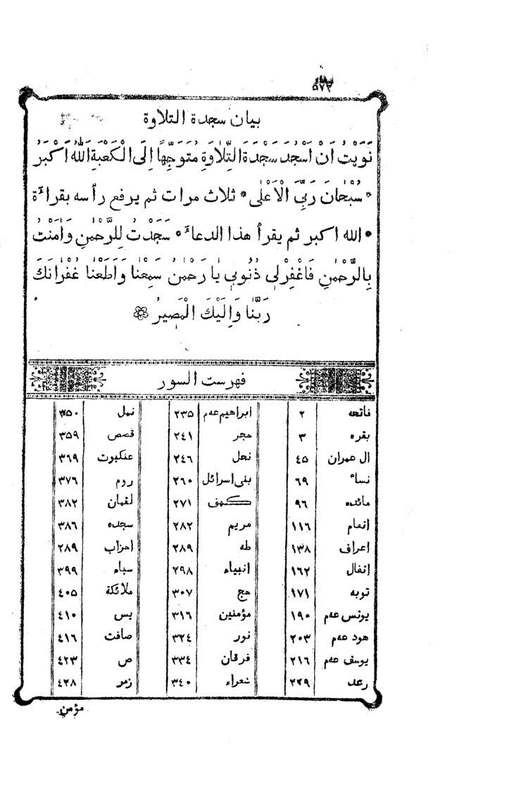 ٥٧٢
بيان سجدة التلاوة
نَوَيْتُ اَنْ اَسْجُدَ سَجْدَةَ التِّلَاوَةِ مُتَوَجِّهًا اِلَى الْكَعْبَةِ اَللهُ اَكْبَرُ
سُبْحَانَ رَبِّىَ الْاَعْلٰى ثلاث مرات ثم يرفع رأسه بقراءة
الله اكبر ثم يقرأ هذا الدعاء سَجَدْتُ لِلرَّحْمٰنِ وَاٰمَنْتُ
بِالرَّحْمٰنِ فَاغْفِرْلِى ذُنُوبِى يَا رَحْمٰنُ سَمِعْنَا وَاَطَعْنَا غُفْرَانَكَ
رَبَّنَا وَاِلَيْكَ الْمَصِيرُ
فهرست السور
فاتحه ٢ ابراهيم عم ٢٣٥ نمل ٣٥٠
بقره ٣ حجر ٢٤١ قصص ٣٥٩
ال عمران ٤٥ نحل ٢٤٦ عنكبوت ٣٦٩
نساء ٦٩ بنى اسرائل ٢٦٠ روم ٣٧٦
مائده ٩٦ كهف ٢٧١ لقمان ٣٨٢
انعام ١١٦ مريم ٢٨٢ سجده ٣٨٦
اعراف ١٣٨ طه ٢٨٩ احزاب ٢٨٩
انفال ١٦٢ انبياء ٢٩٨ سباء ٣٩٩
توبه ١٧١ حج ٣٠٧ ملائكة ٤٠٥
يونس عم ١٩٠ مؤمنين ٣١٦ يس ٤١٠
هود عم ٢٠٣ نور ٣٢٤ صافت ٤١٦
يوسف عم ٢١٦ فرقان ٣٣٤ ص ٤٢٣
رعد ٢٢٩ شعراء ٣٤٠ زمر ٤٢٨
مؤمن